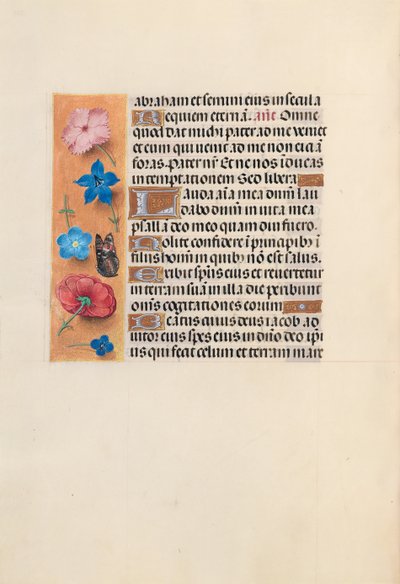 abraham et semini eius in secula
Requiem eternā. añe Omne
quod dat michi pater ad me veniet
et eum qui venit ad me non eiciā
foras. Pater nr̄ Et ne nos īducas
in temptationem Sed libera
Lauda aīa mea dnm̄ lau
dabo dnm̄ in vita mea
psallā deo meo quam diu fuero.
Nolite confidere ī principibꝰ ī
filijs homīm in quibꝰ nō est salus.
Exibit spūs eius et revertetur
in terram suā in illa die peribunt
om̄s cogitationes eorum
Beatus cuius deus iacob ad
iutor eius spes eius in dno̅ deo ip̅i
us qui fecit celum et terram mare